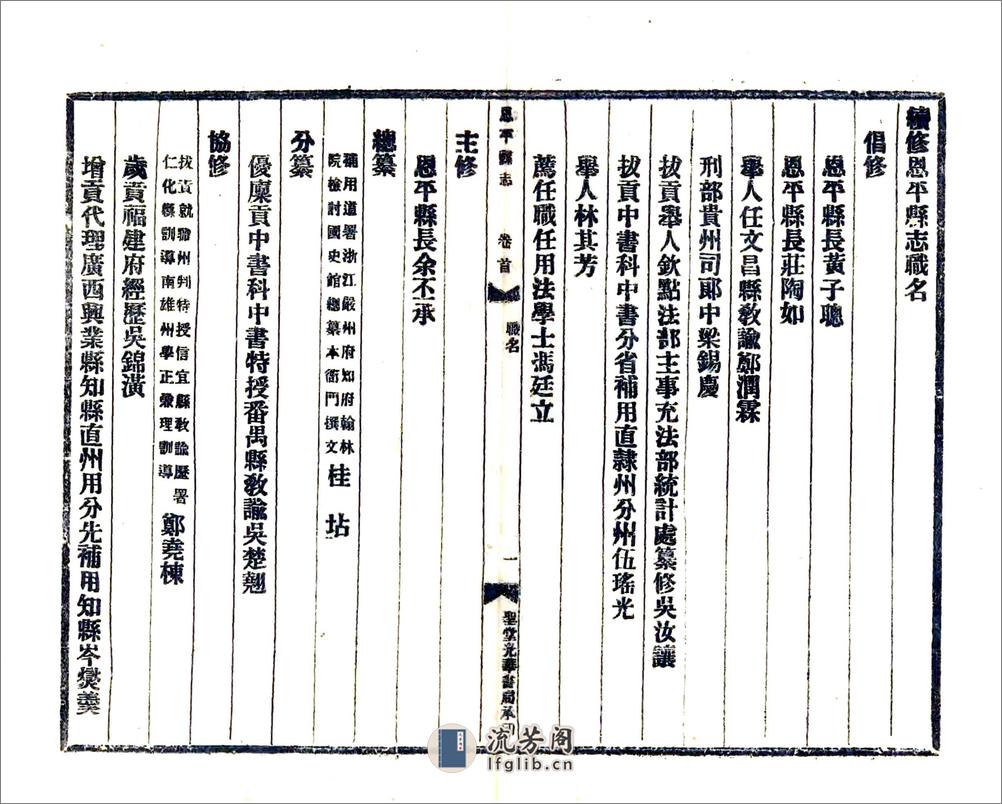 續修恩平縣志職名
倡修
恩平縣長黃子聰
恩平縣長莊陶如
舉人任文昌縣教諭鄭潤霖
刑部貴州司郎中梁錫慶
拔貢舉人欽點法部主事充法部統計處纂修吳汝讓
拔貢中書科中書分省補用直隸州分州伍瑤光
舉人林其芳
薦任職任用法學士馮廷立
恩平縣志 卷首 職名 一 聖堂光華書局承印
主修
恩平縣長余丕承
總纂
補用道署浙江嚴州府知府翰林
院檢討國史館總纂本衙門撰文
桂坫
分纂
優廩貢中書科中書特授番禺縣教諭吳楚翹
協修
拔貢就職州判特授信宜縣教諭歷署
仁化縣訓導南雄州學正兼理訓導
鄭堯棟
歲貢福建府經歷吳錦潢
增貢代理廣西興業縣知縣直州用分先補用知縣岑爕羹
流芳阁
lfglib.cn